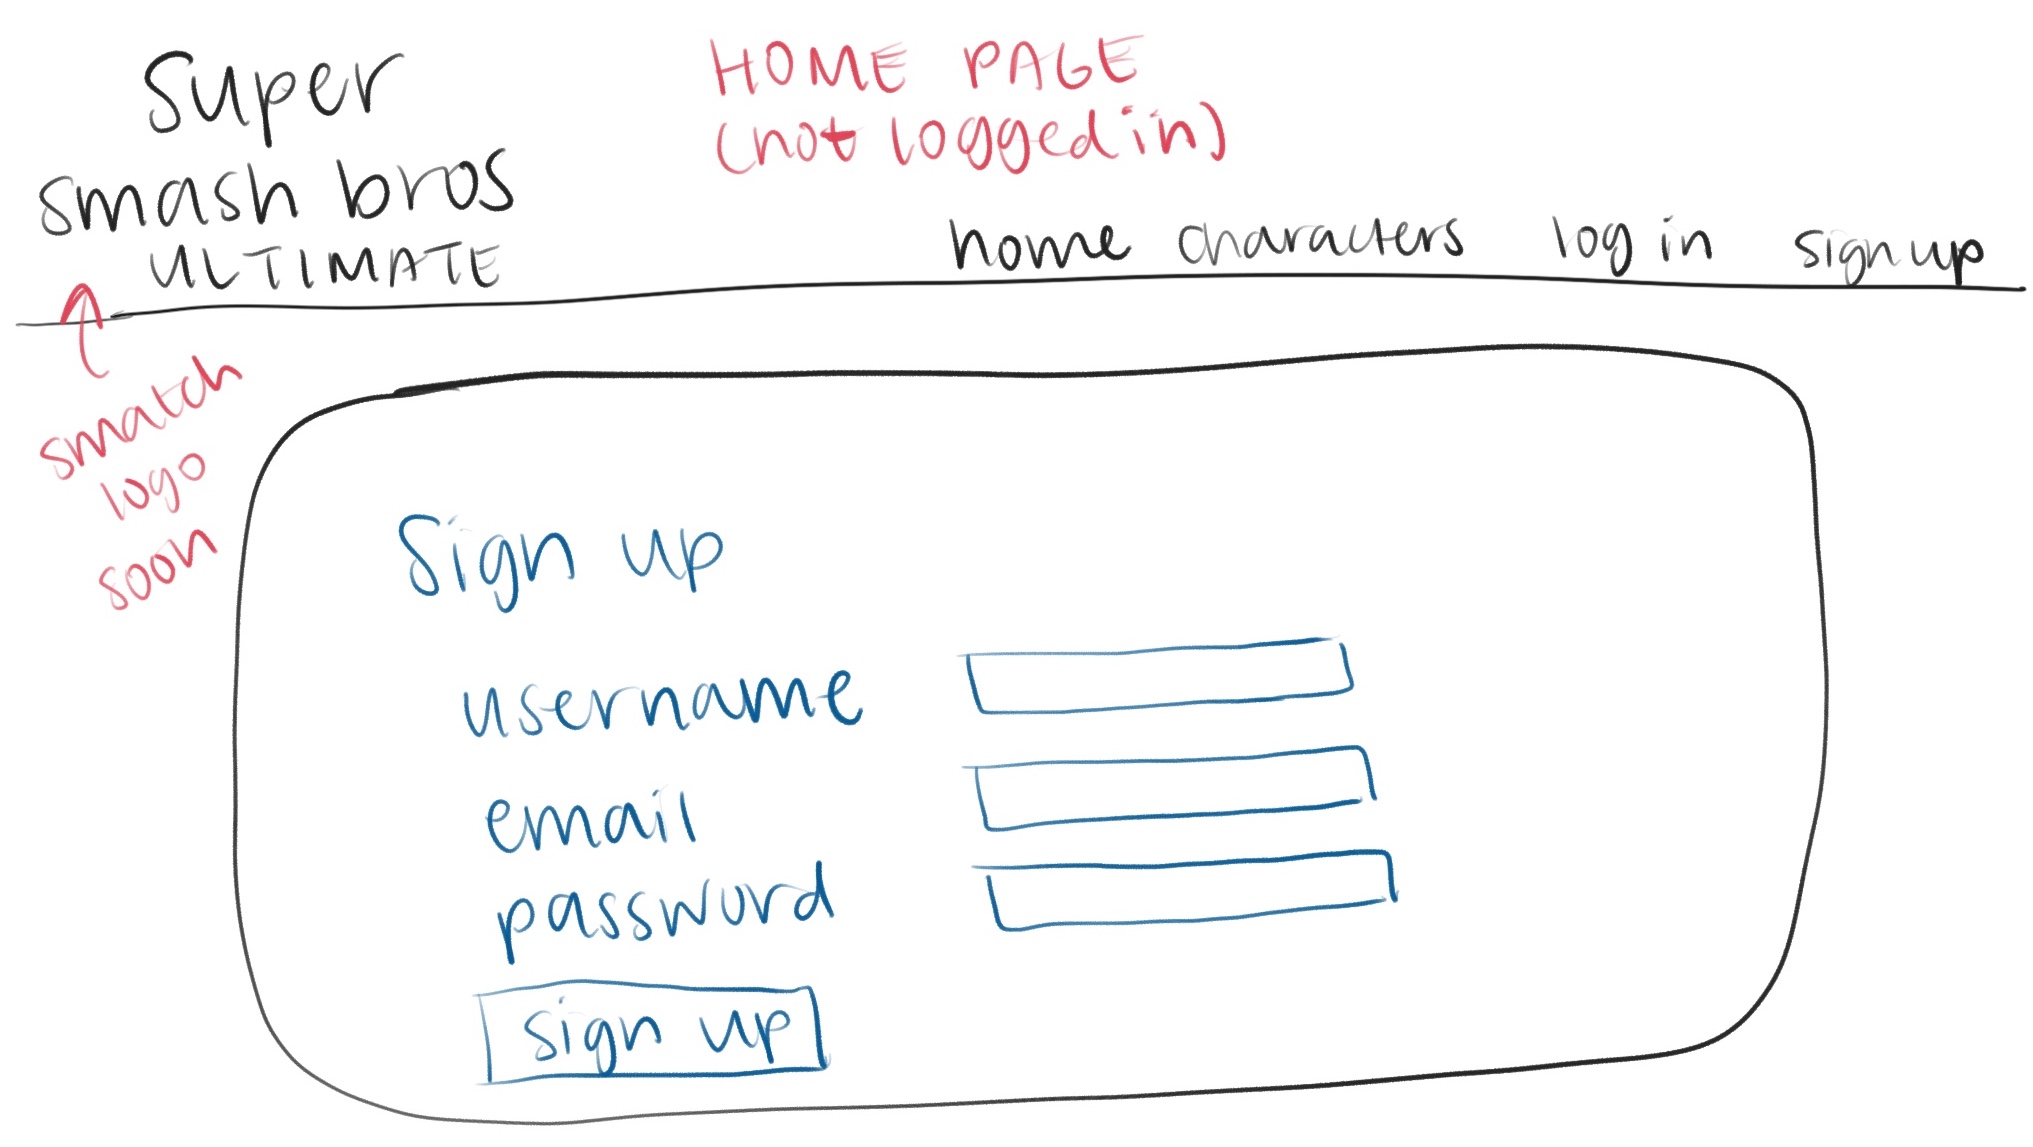 super
smash bros
ULTIMATE
HOME PAGE
(not logged in)
home characters log in sign up
smatch
logo
soon
Sign up
username
email
password
sign up